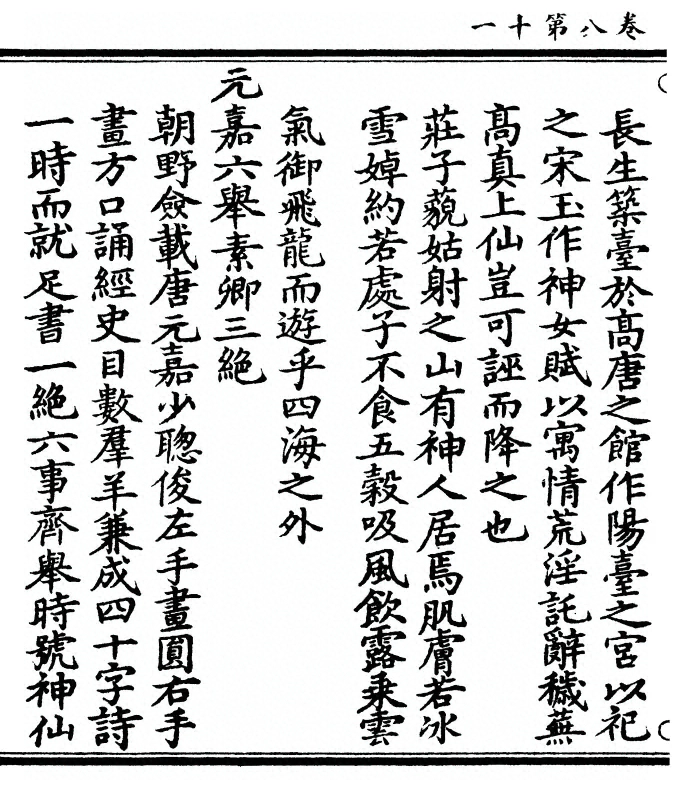 卷八第十一
長生築臺於髙唐之館作陽臺之宮以祀
之宋玉作神女賦以寓情荒淫託辭穢蕪
髙真上仙豈可誣而降之也
莊子藐姑射之山有神人居焉肌膚若冰
雪婥約若處子不食五穀吸風飲露乗雲
氣御飛龍而遊乎四海之外
元嘉六舉素卿三絶
朝野僉載唐元嘉少聰俊左手畫圓右手
畫方口誦經史目數羣羊兼成四十字詩
一時而就足書一絶六事齊舉時號神仙